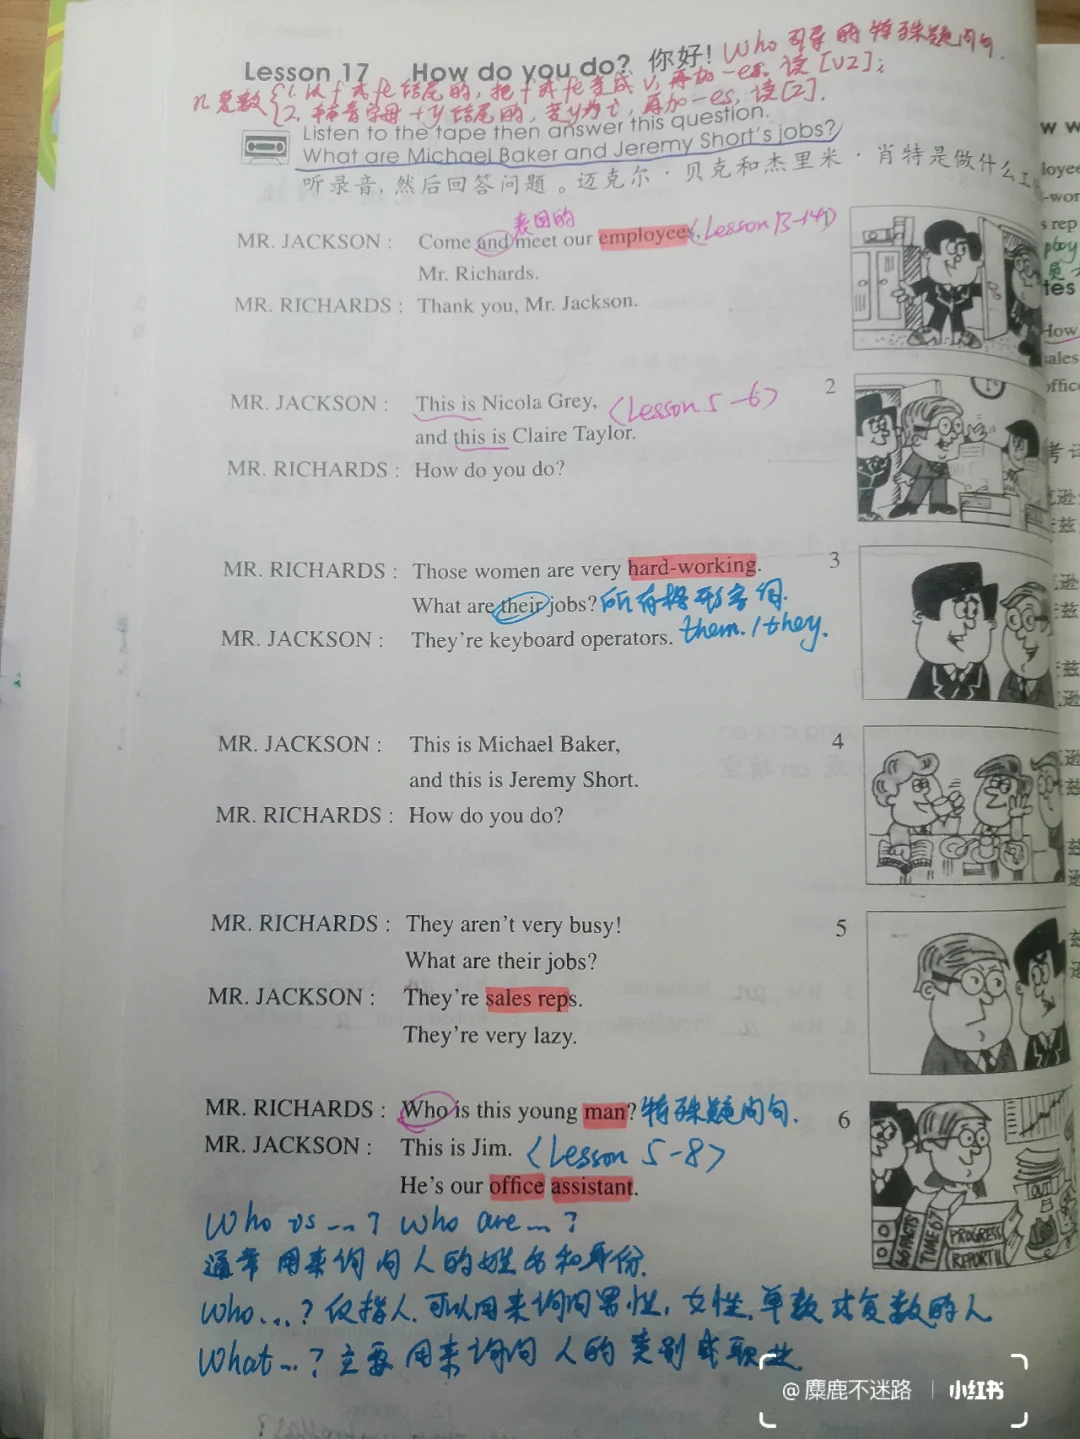 Lesson 17 How do you do? 你好! Who 引导的特殊疑问句.
n.复数 { 1. 以f或fe结尾的,把f或fe变成v,再加-es.读[vz];
2. 辅音字母+y结尾的,变y为i,再加-es,读[z].
Listen to the tape then answer this question.
What are Michael Baker and Jeremy Short's jobs?
听录音,然后回答问题。迈克尔·贝克和杰里米·肖特是做什么工
表目的
MR. JACKSON : Come and meet our employees, (Lesson 13-14)
Mr. Richards.
MR. RICHARDS : Thank you, Mr. Jackson.
MR. JACKSON : This is Nicola Grey, (Lesson 5-6) 2
and this is Claire Taylor.
MR. RICHARDS : How do you do?
MR. RICHARDS : Those women are very hard-working. 3
What are their jobs? 所有格形容词.
MR. JACKSON : They're keyboard operators. them./they.
MR. JACKSON : This is Michael Baker, 4
and this is Jeremy Short.
MR. RICHARDS : How do you do?
MR. RICHARDS : They aren't very busy! 5
What are their jobs?
MR. JACKSON : They're sales reps.
They're very lazy.
MR. RICHARDS : Who is this young man? 特殊疑问句. 6
MR. JACKSON : This is Jim. (Lesson 5-8)
He's our office assistant.
PROGRESS
REPORT II
Who is ...? Who are ...?
通常用来询问人的姓名和身份.
Who...? 仅指人.可以用来询问男性,女性,单数或复数的人
What...? 主要用来询问人的类别或职业
@麋鹿不迷路 | 小红书